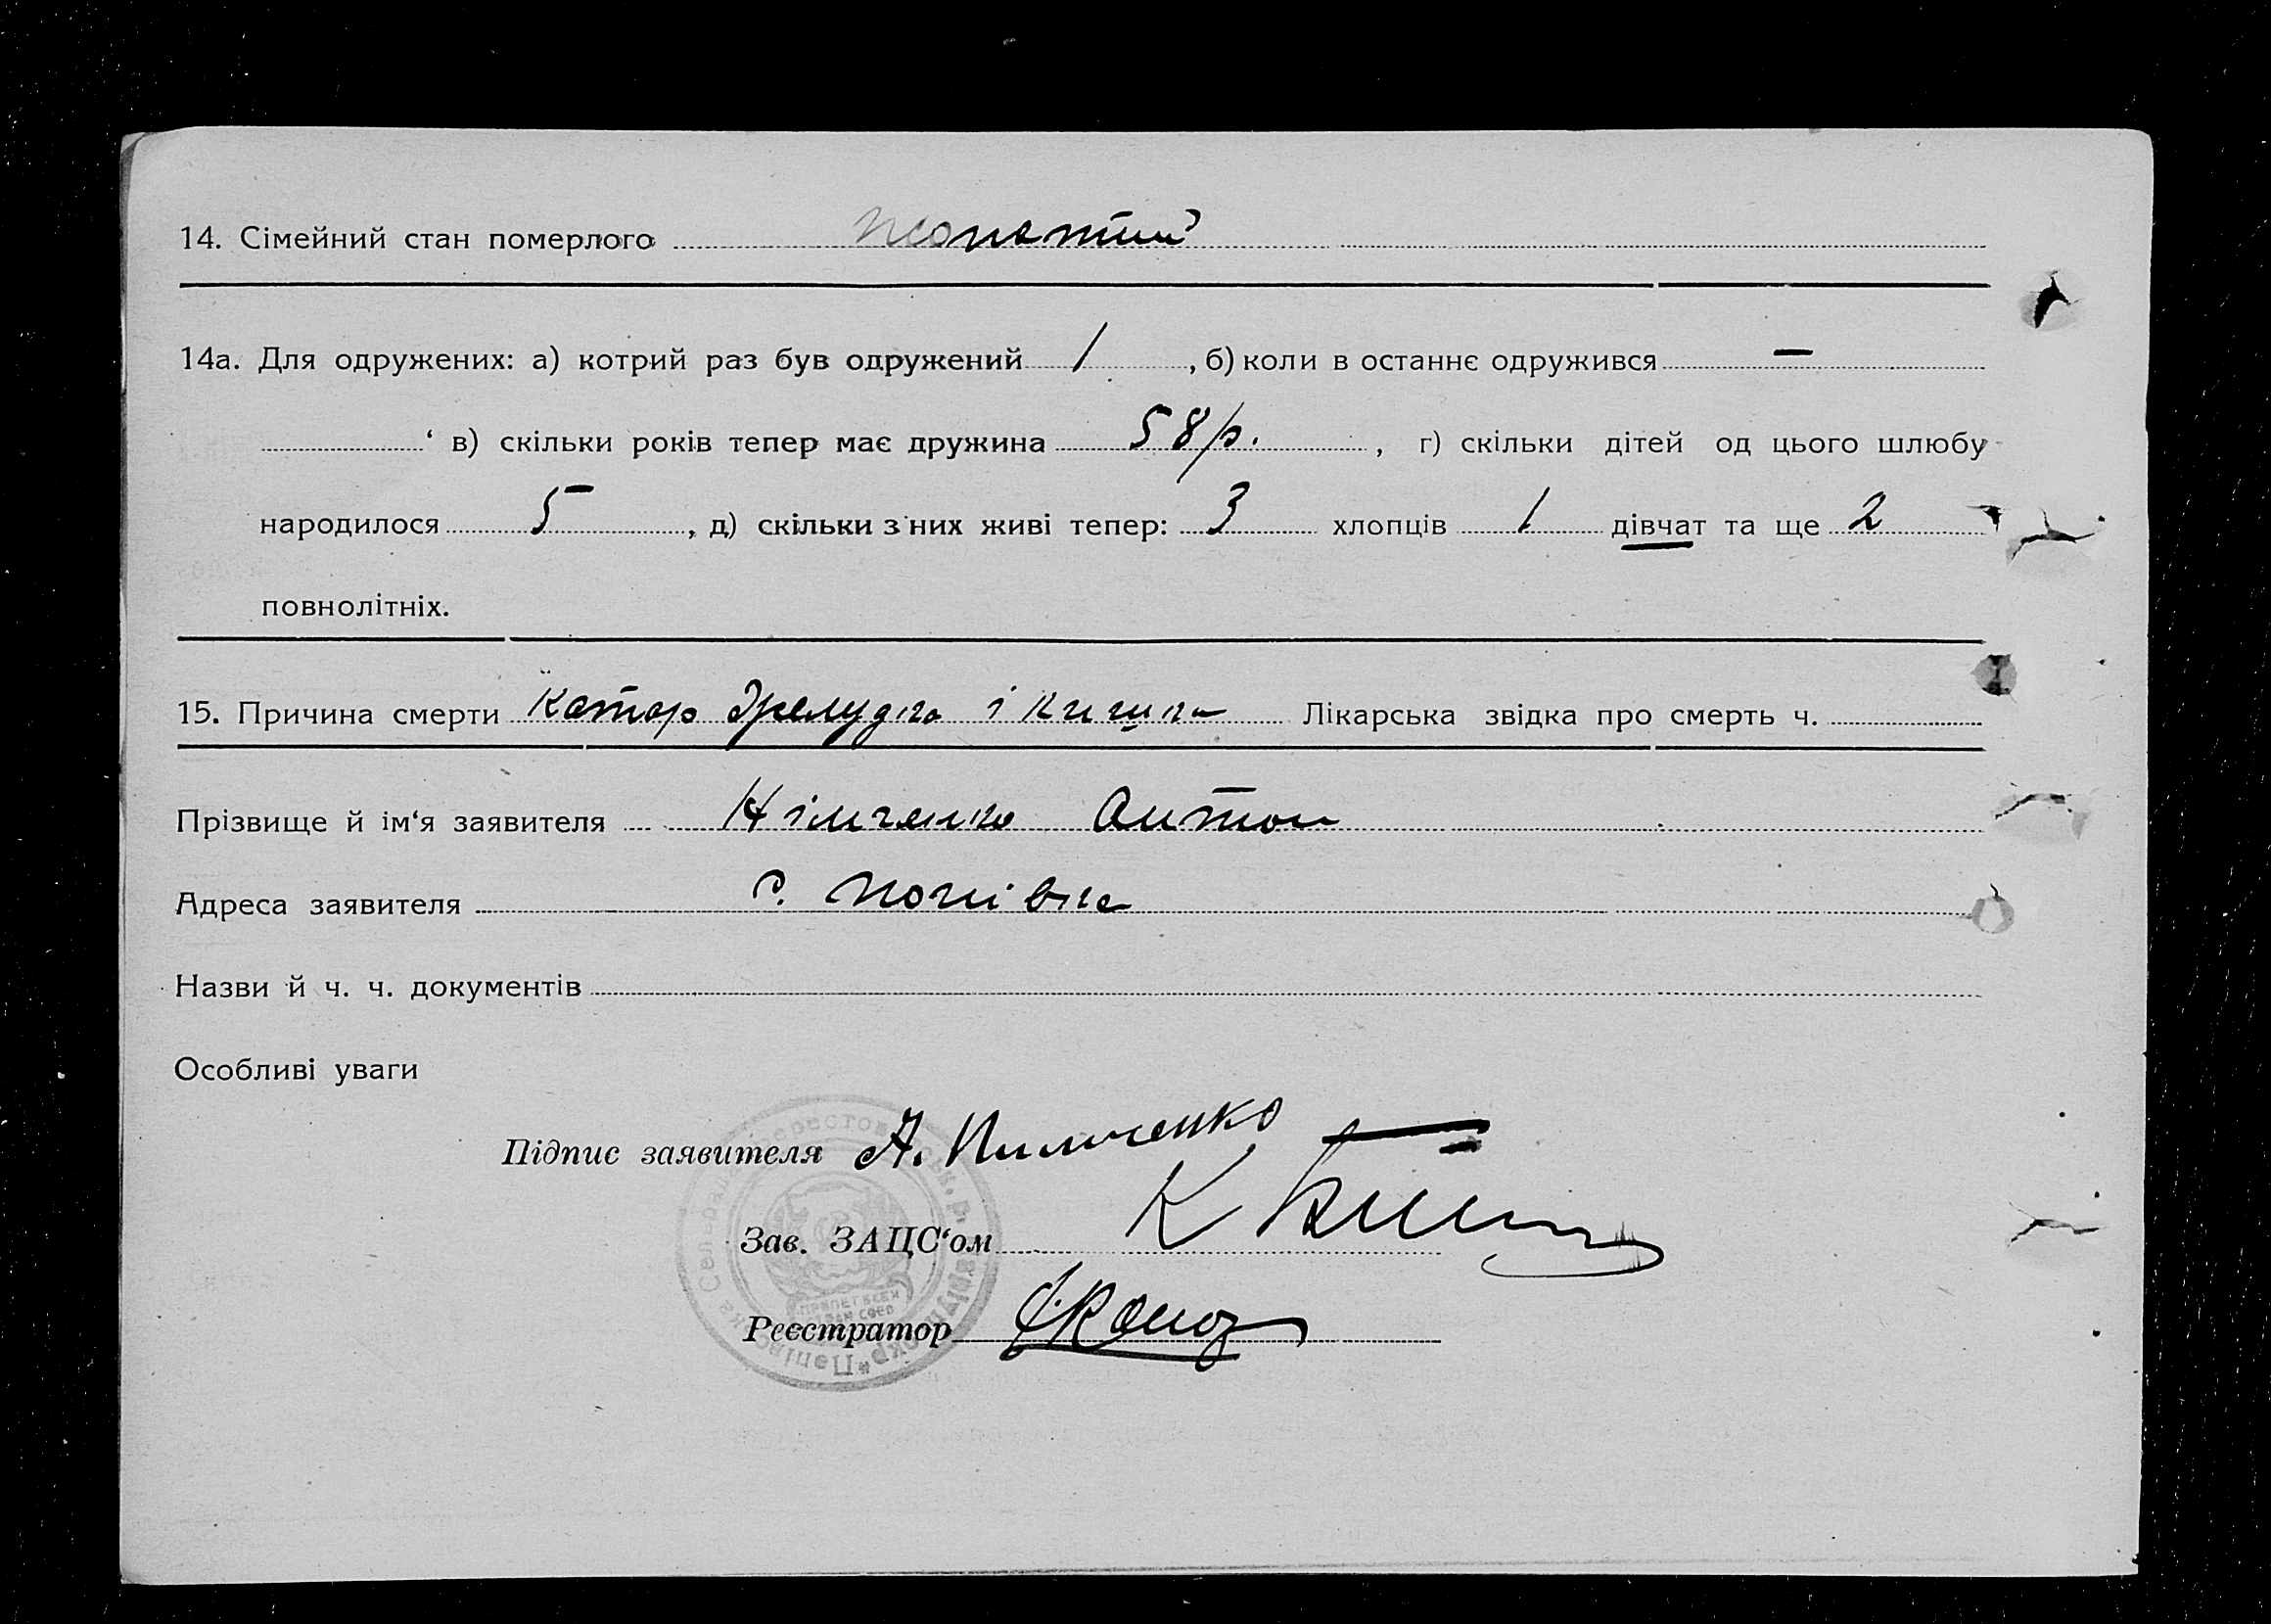 14. Сімейний стан померлого жонатий
14а. Для одружених: а) котрий раз був одружений 1, б) коли в останнє одружився —
‘ в) скільки років тепер має дружина 58 р., г) скільки дітей од цього шлюбу
народилося 5, д) скільки з них живі тепер: 3 хлопців 1 дівчат та ще 2
повнолітніх.
15. Причина смерти Катар желудка і кишка Лікарська звідка про смерть ч.
Прізвище й ім‘я заявителя Німченко Антон
Адреса заявителя с. Попівка
Назви й ч. ч. документів
Особливі уваги
Підпис заявителя А.
Зав. ЗАЦС‘ом К
Реєстратор